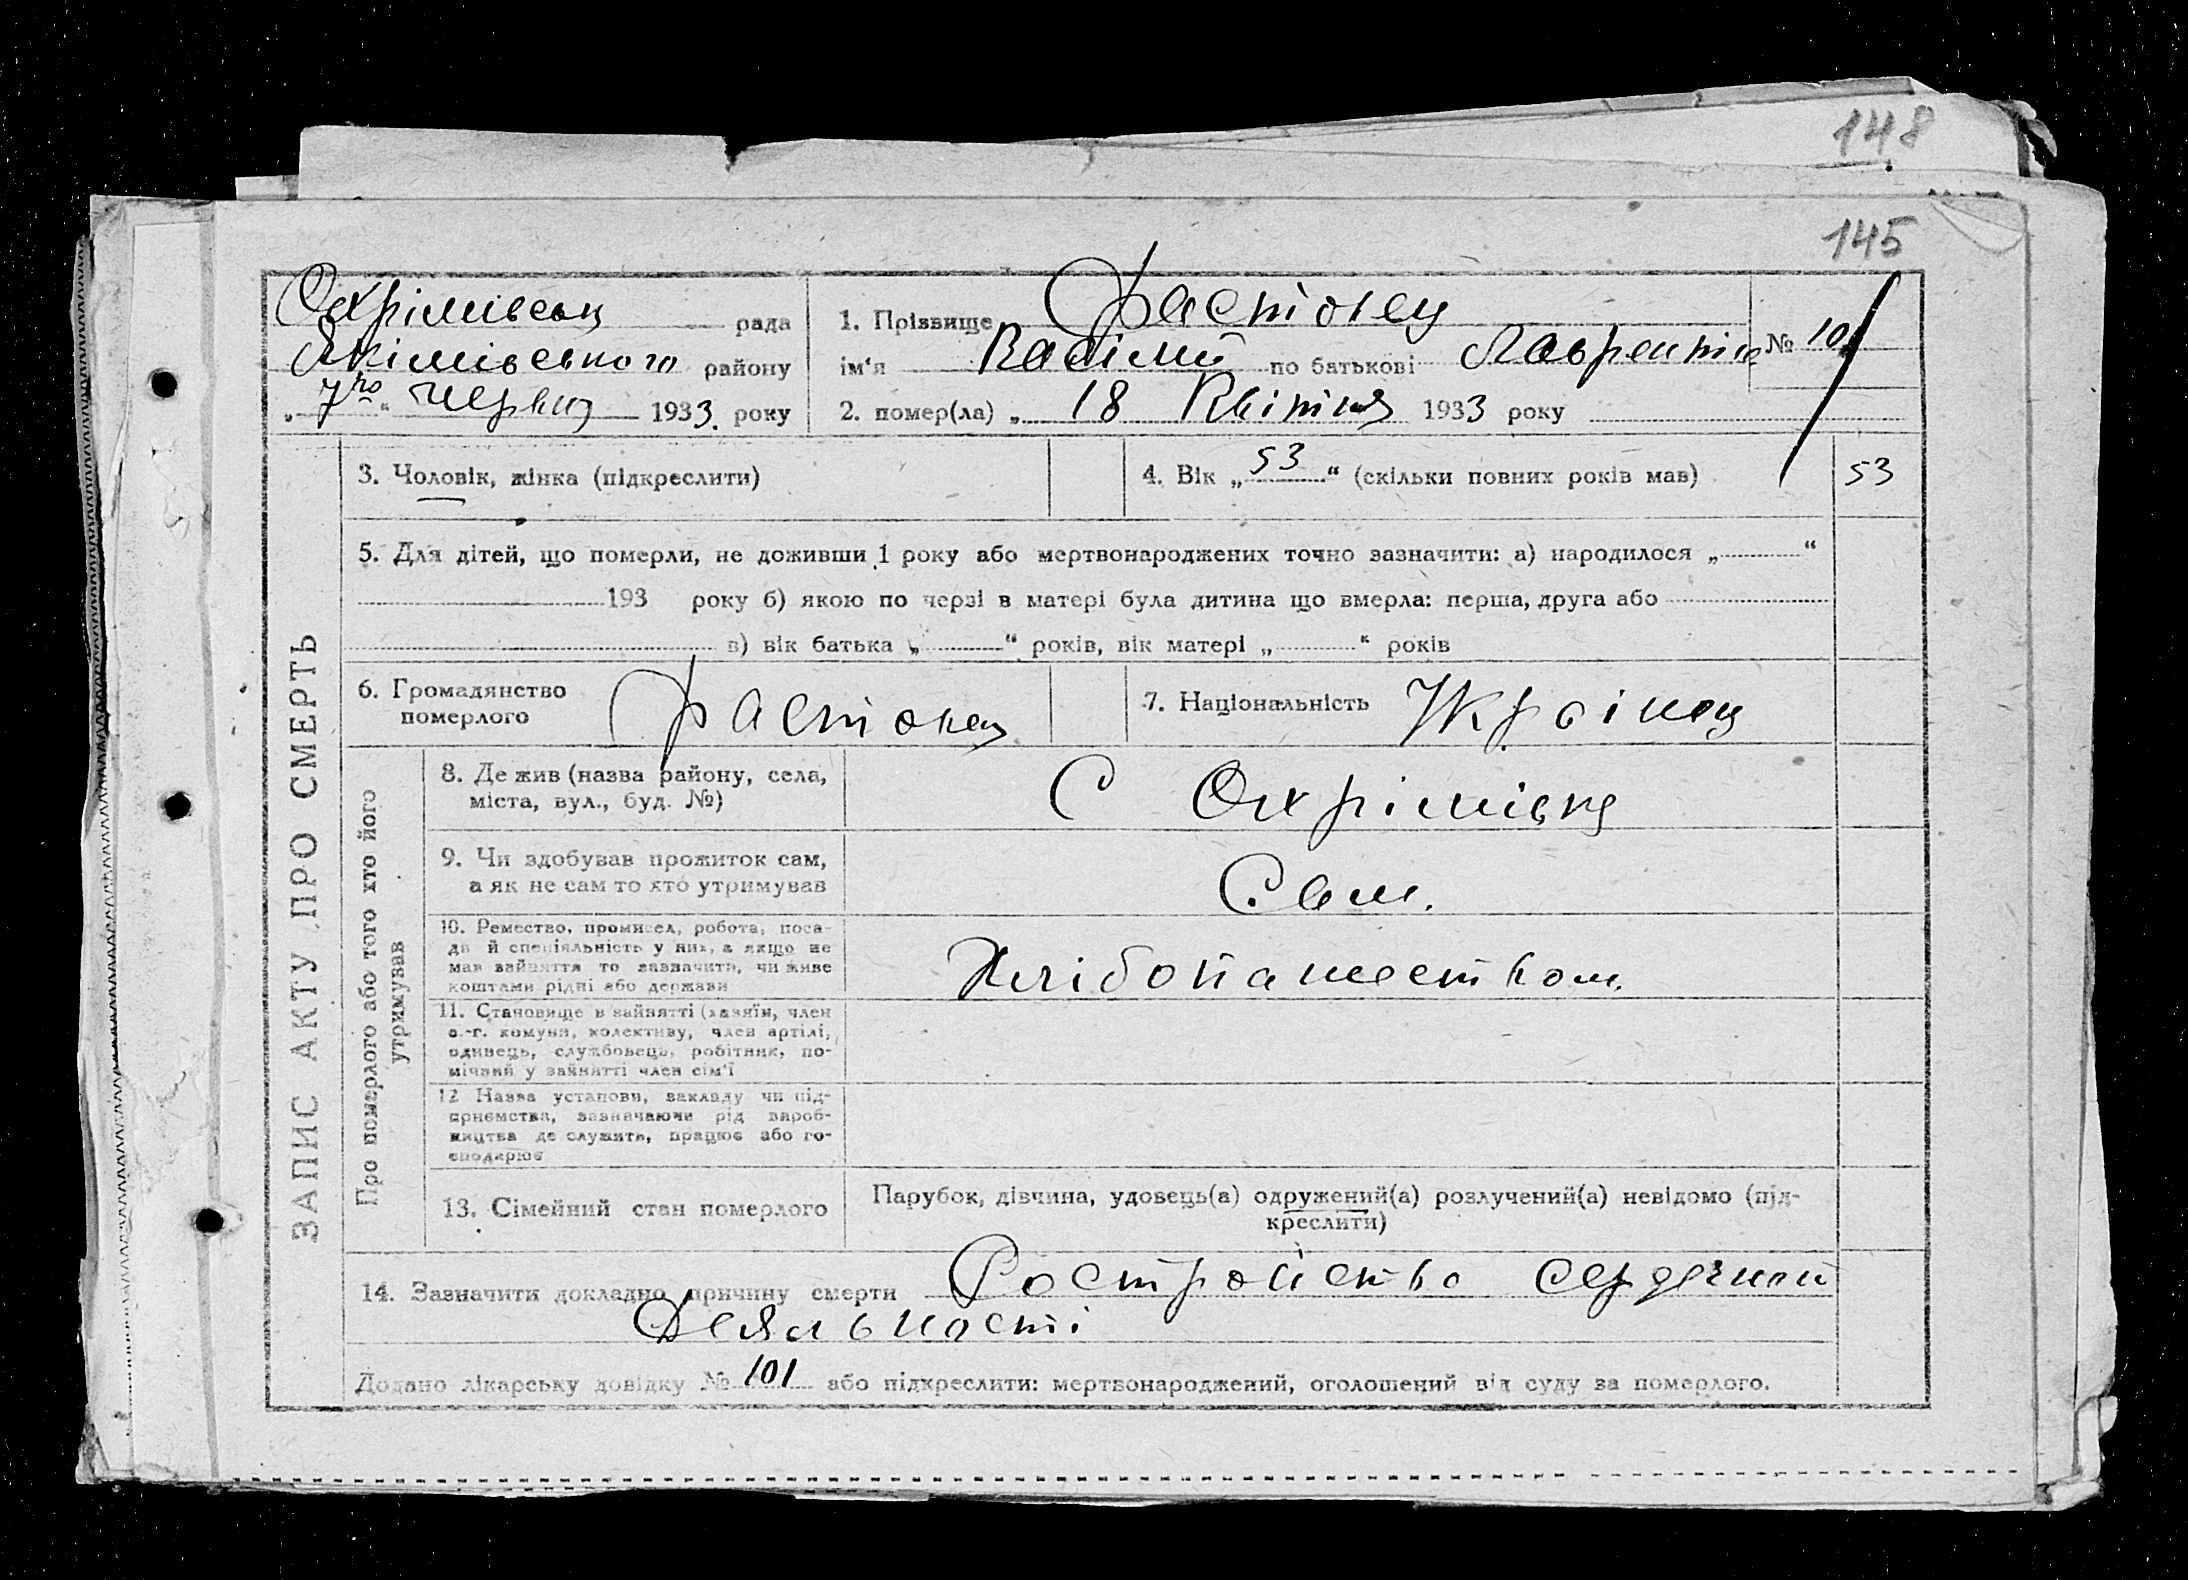 148
145
Охрімівськ рада
Якімівського району
„ 7го “ Червня 1933. року
1. Прізвище Фастовец
ім'я Васілий по батькові Лаврентіе
№ 101
2. помер(ла) „ 18 Квітня 1933 року
3. Чоловік, жінка (підкреслити)
4. Вік „ 53 “ (скільки повних років мав)
53
5. Для дітей, що померли, не доживши 1 року або мертвонароджених точно зазначити: а) народилося „ “
193 року б) якою по черзі в матері була дитина що вмерла: перша, друга або
в) вік батька „ “ років, вік матері „ “ років
ЗАПИС АКТУ ПРО СМЕРТЬ
6. Громадянство
померлого
Фастовец
7. Національність Украінец
Про померлого або того хто його
утримував
8. Де жив (назва району, села,
міста, вул., буд. №)
С Охрімівка
9. Чи здобував прожиток сам,
а як не сам то хто утримував
Сам.
10. Ремество, промисел, робота, поса-
да й спеціяльність у них, а якщо не
мав зайняття то зазначити, чи живе
коштами рідні або держави
Хлібопашеством.
11. Становище в зайнятті (хазяїн, член
с.-г. комуни, колективу, член артілі,
одинець, службовець, робітник, по-
мічний у зайнятті член сім'ї
12 Назва установи, закладу чи під-
приємства, зазначаючи рід вироб-
ництва де служить, працює або го-
сподарює
13. Сімейний стан померлого
Парубок, дівчина, удовець(а) одружений(а) розлучений(а) невідомо (під-
креслити)
14. Зазначити докладно причину смерти Ростройство сердечной
Деяльності
Додано лікарську довідку № 101 або підкреслити: мертвонароджений, оголошений від суду за померлого.